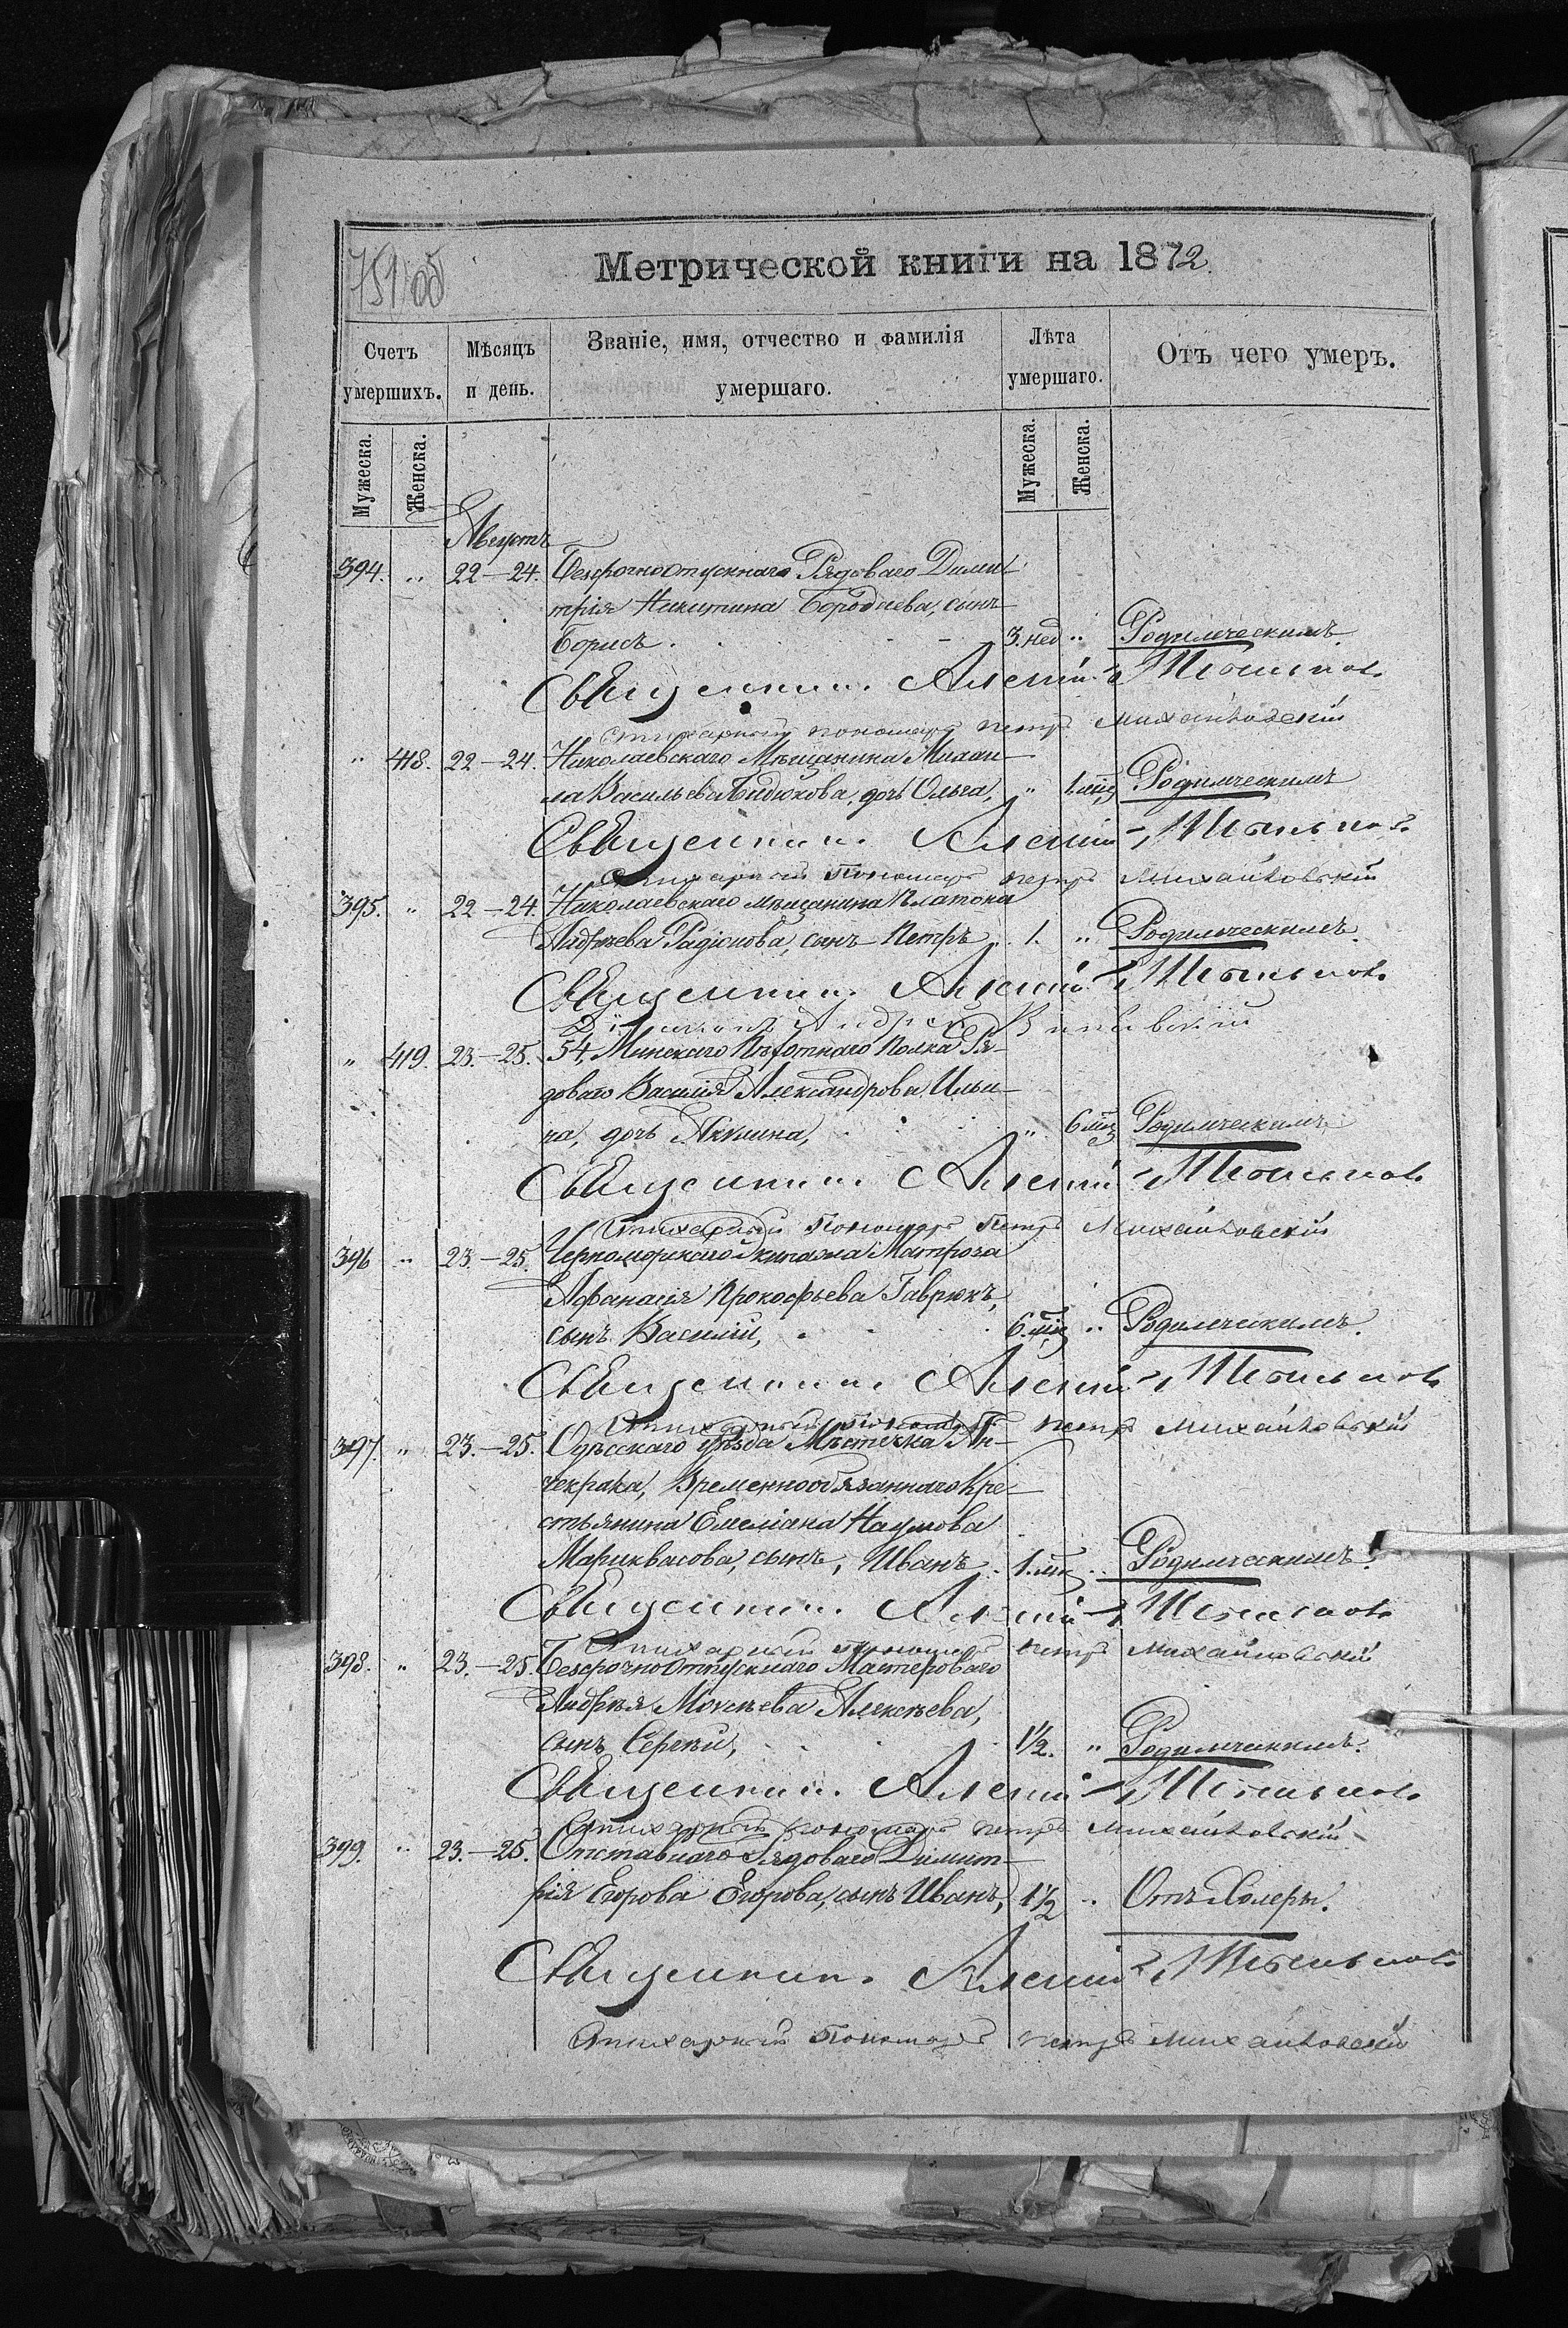 751 об
Метрической книги на 1872.
Счетъ умершихъ.
Мѣсяцъ и день.
Званіе, имя, отчество и фамилія умершаго.
Лѣта умершаго.
Отъ чего умеръ.
Мужеска.
Женска.
Мужеска.
Женска.
Августъ
394. „ 22–24. Безсрочноотпускнаго Рядоваго Дими-
трія Никитина Бородаева, сынъ
Борисъ. 3. нед „ Родимческимъ.
Священникъ Алексій
Стихарный пономарь Петръ Михайловскій
„ 418. 22–24. Николаевскаго Мѣщанина Михаи-
ла Васильева Бидюкова, дочь Ольга, „ 1. мѣц Родимческимъ
Священникъ Алексій
Стихарный Пономарь Петръ Михайловскій
395. „ 22–24. Николаевскаго мѣщанина Платона
Андреева Радіонова, сынъ Петръ 1. „ Родимческимъ.
Священникъ Алексій
Діаконъ Андрей
„ 419. 23.–25. 54. Минскаго Пѣхотнаго Полка Ря-
доваго Василія Александрова Ильи-
на, дочь Акилина, „ 6 мѣц Родимческимъ
Священникъ Алексій
Стихарный Пономарь Петръ Михайловскій
396 „ 23.–25. Черноморскаго Экипажа Матроса
Афанасія Прокофьева Гаврюкъ,
сынъ Василій, 6. мѣц „ Родимческимъ.
Священникъ Алексій
Стихарный пономарь Петръ Михайловскій
397. „ 23.–25. Одесскаго уѣзда Мѣстечка Ан-
чекрака, Временнообязаннаго Кре-
стьянина Емеліана Наумова
Мариквасова, сынъ, Иванъ 1. мѣц „ Родимческимъ.
Священникъ Алексій
Стихарный пономарь Петръ Михайловскій
398. „ 23.–25. Безсрочноотпускнаго Мастероваго
Андрея Моисѣева Алексѣева,
сынъ Сергѣй, 1½. „ Родимческимъ.
Священникъ Алексій
Стихарный пономарь Петръ Михайловскій
399. „ 23.–25. Отставнаго Рядоваго Димит-
рія Егорова Егорова, сынъ Иванъ, 1½ „ Отъ Холеры.
Священникъ Алексій
Стихарный Пономарь Петръ Михайловскій